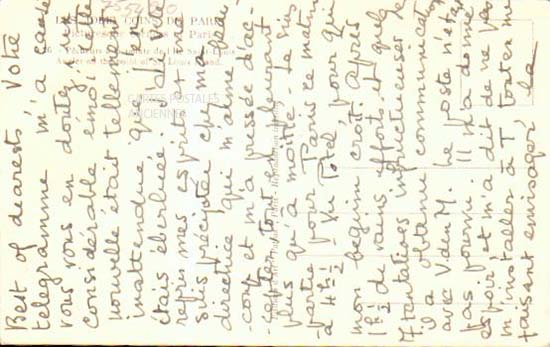 LES JOLIS COINS DE PARIS
Picturesque Paris
Pêcheurs à la pointe de l'Ile Saint-Louis
Angler on the point of St Louis Island.
CARTES POSTALES
ANCIENNES
Best of dearests Votre
telegramme m'a causé
vous vous en doutez un
considérable émoi; cette
nouvelle était tellement
inattendue que j'en
étais éberluée. J'ai
repris mes esprits et me
suis précipitée chez ma
directrice qui m'aime
-coup et m'a pressée d'ac-
-cepter tout en
plus qu'à moitié. Je suis
partie pour Paris ce matin
à 4h ½ - Vu Potel pour qui
mon béguin croît. Après
1h ½ de vains efforts et quelq
7 tentatives infructueuses
il a obtenu communication
avec V. den M. Le poste n'est
pas pourvu. Il m'a donné
espoir et m'a dit de ne pas
m'installer à T. toutes me
faisant envisager la